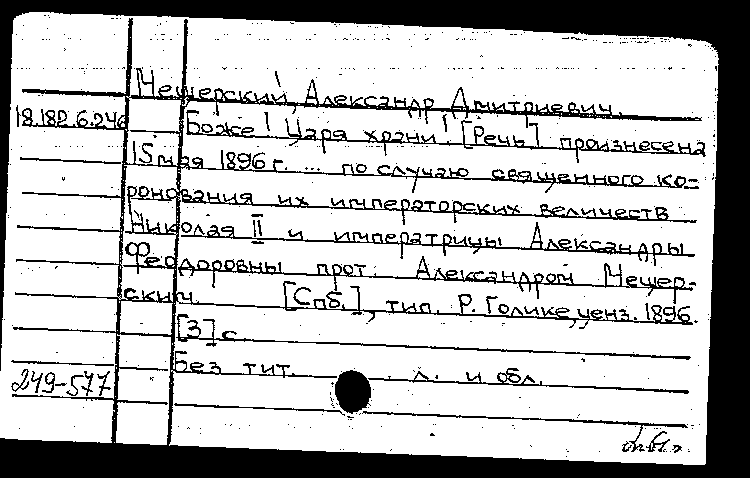 Мещерский, Александр Дмитриевич.
18.182.6.246 Боже! Царя храни! [Речь] произнесена
15 мая 1896 г. ... по случаю священного ко-
ронования их императорских величеств
Николая II и императрицы Александры
Феодоровны прот. Александром Мещер-
ским. [Спб.], тип. Р. Голике, ценз. 1896.
[3] с.
Без тит. л. и обл.
249-577